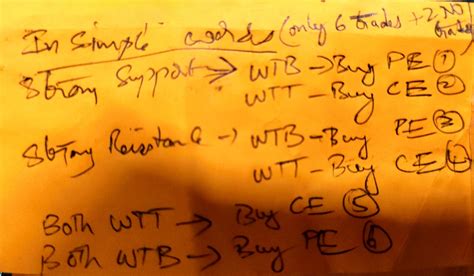 In Simple words (only 6 trades + 2 NO trades)
Strong Support → WTB → Buy PE ①
WTT - Buy CE ②
Strong Resistance → WTB - Buy PE ③
WTT - Buy CE ④
Both WTT → Buy CE ⑤
Both WTB → Buy PE ⑥